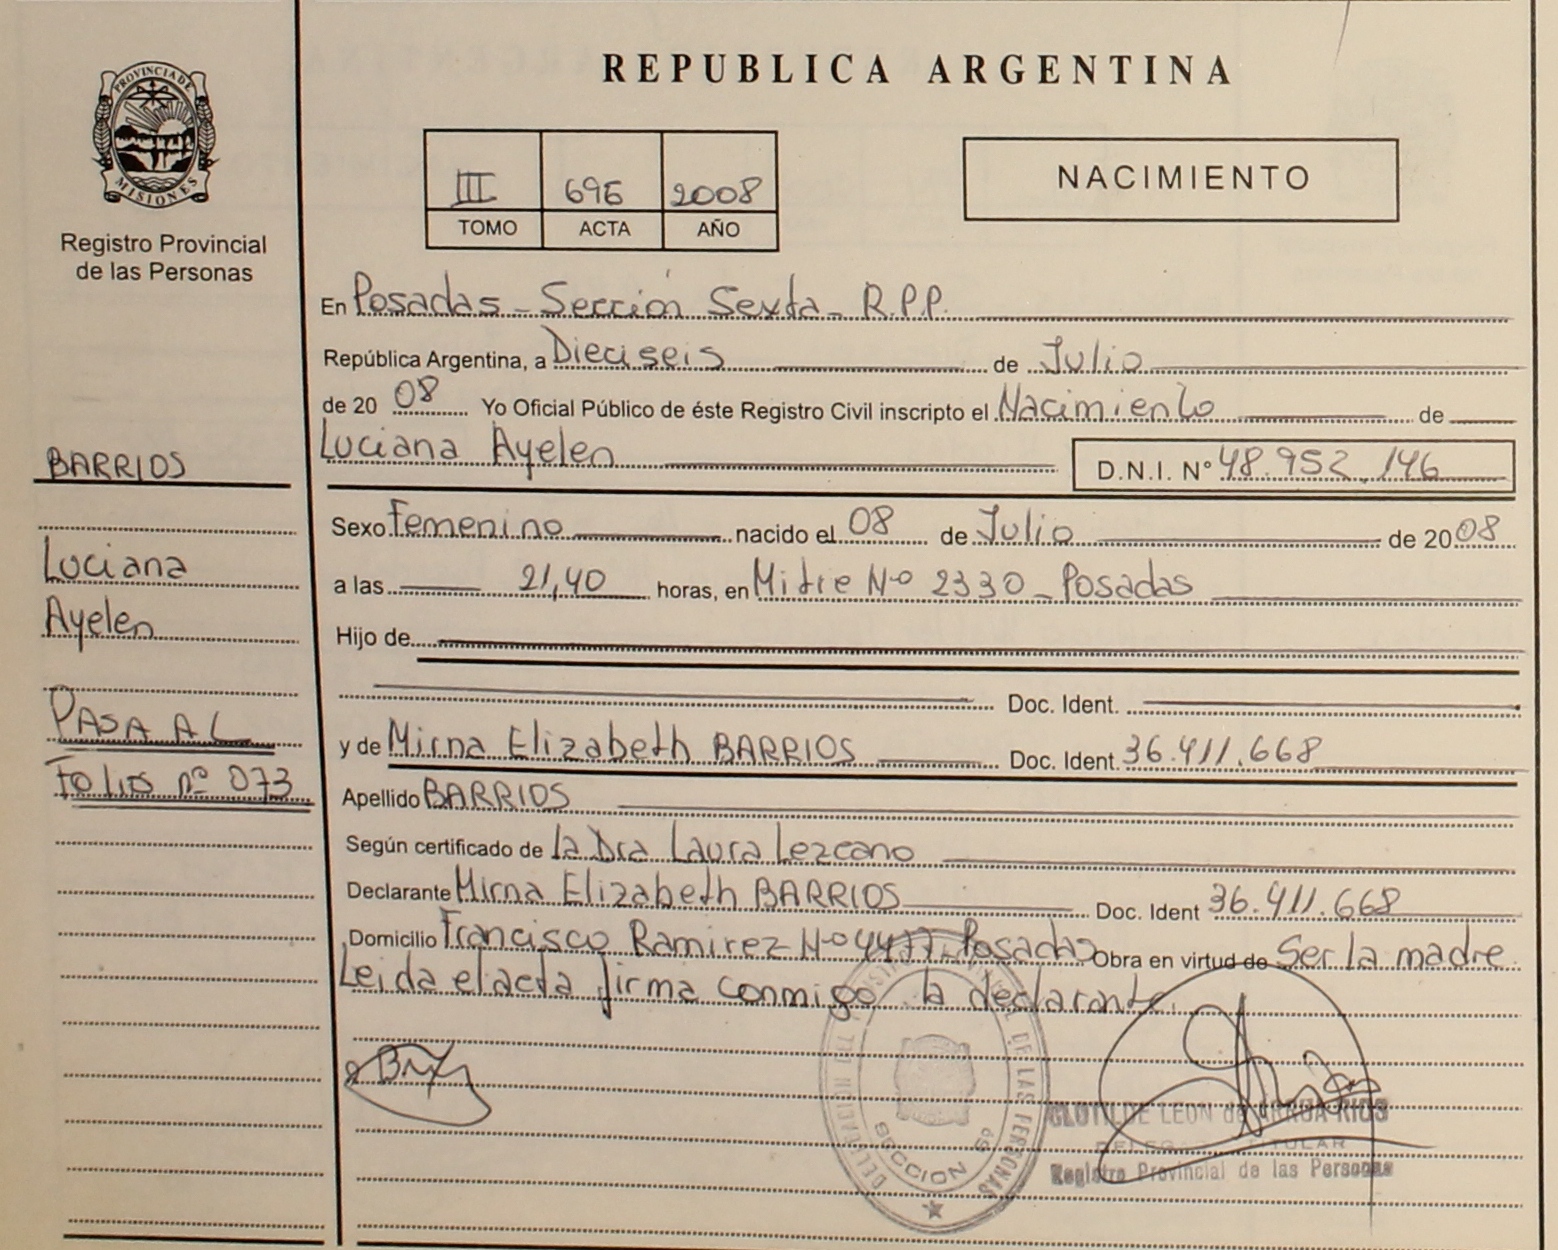 PROVINCIA DE
MISIONES
Registro Provincial
de las Personas
BARRIOS
Luciana
Ayelen
PASA AL
Folios nº 073
REPUBLICA ARGENTINA
III 696 2008
TOMO ACTA AÑO
NACIMIENTO
En Posadas - Sección Sexta - R.P.P.
República Argentina, a Dieciseis de Julio
de 20 08 Yo Oficial Público de éste Registro Civil inscripto el Nacimiento de
Luciana Ayelen D.N.I. N° 48.952.146
Sexo Femenino nacido el 08 de Julio de 20 08
a las 21,40 horas, en Mitre Nº 2330 - Posadas
Hijo de
Doc. Ident.
y de Mirna Elizabeth BARRIOS Doc. Ident. 36.411.668
Apellido BARRIOS
Según certificado de la Dra Laura Lezcano
Declarante Mirna Elizabeth BARRIOS Doc. Ident 36.411.668
Domicilio Francisco Ramirez Nº 4477 - Posadas Obra en virtud de Ser la madre
Leida el acta firma conmigo la declarante.
DE LAS PERSONAS
SECCION 6º
CLOTILDE LEON de RIOS
TITULAR
Registro Provincial de las Personas